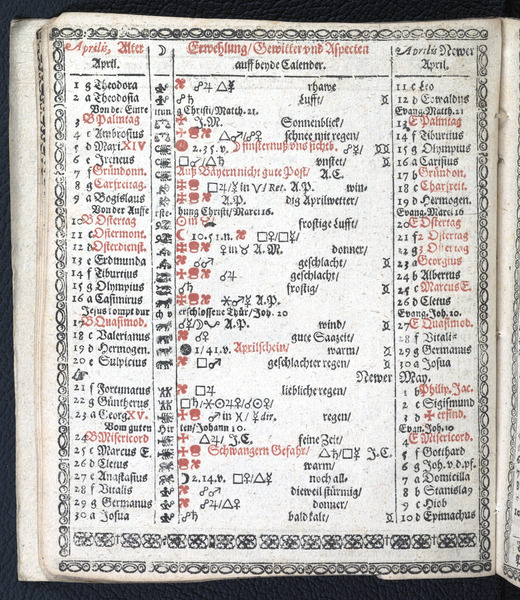 Aprilis Alter April. ☽ Erwehlung/Gewitter vnd Aspecten auff beyde Calender. Aprilis Newer April.
1 g Theodora ☍♃ △☿ rhawe 11 c Leo
2 a Theodosia ☍♄ Lufft/ 12 d Ewaldus
Von de. Einre Christi/Matth. 21. Evang. Matth. 21
3 B Palmtag J.M. Sonnenblick/ 13 E Palmtag
4 c Ambrosius △♂/☍♀ schnee mit regen/ 14 f Tiburtius
5 d Maxi. XIV 2.35.v. finsternuß vns sichtb. ☍☿/ 15 g Olympius
6 e Ireneus □☍/△♄ vnstet/ 16 a Carisius
7 f Gründonn. Auß Bayern nicht gute Post/ A.C. 17 b Gründon.
8 g Carfreitag. □♃/☿ in V/Ret. A.P. win- 18 c Charfreit.
9 a Bogislaus A.P. dig Aprilwetter/ 19 d Hermogen.
Von der Auffe rste- hung Christi/Marci 16. Evang. Marci 16
10 B Ostertag frostige Lufft/ 20 E Ostertag
11 c Ostermont. 10.51.n. □♀/□☿/ 21 f 2 Ostertag
12 d Osterdienst. ♀ in ♉ A.M. donner/ 22 g 3 Ostertag
13 e Erdmunda ☌♂ geschlacht/ 23 a Georgius
14 f Tiburtius ☌♃ geschlacht/ 24 b Albertus
15 g Olympius ☌♄ frostig/ 25 c Marcus E.
16 a Casimirus ⚹♂☿ A.P. 26 d Cletus
Jesus kompt dur erschlossene Thür/Joh. 20 Evang. Joh. 10.
17 B Quasimod. A.P. wind/ 27 E Quasimod.
18 c Valerianus ☌♀ gute Saazeit/ 28 f Vitalis
19 d Hermogen. 1/41.v. Aprilschein/ warm/ 29 g Germanus
20 e Sulpicius □♂ geschlachter regen/ 30 a Josua
Newer May.
21 f Fortunatus □♃ liebliche regen/ 1 b Philip. Jac.
22 g Güntherus □♄/⚹☉♃/ 2 c Sigismund
23 a Georg XV. ♂ in ♓/☿ dir. regen/ 3 d ✠ erfind.
Vom guten Hir ten/Johann 10. Evan. Joh. 10
24 B Misericord △♃/ J.C. feine Zeit/ 4 E Misericord.
25 c Marcus E. Schwangern Gefahr/ △♄/□☿ J.C. 5 f Gotthard
26 d Cletus warm/ 6 g Joh. v. d. pf.
27 e Anastasius 2.14.v. □♀/△☿ noch all. 7 a Domicilla
28 f Vitalis ☍♂ dieweil stürmig/ 8 b Stanislaý
29 g Germanus ☍♃/△♀ donner/ 9 c Hiob
30 a Josua ☍♄ bald kalt/ 10 d Epimachus